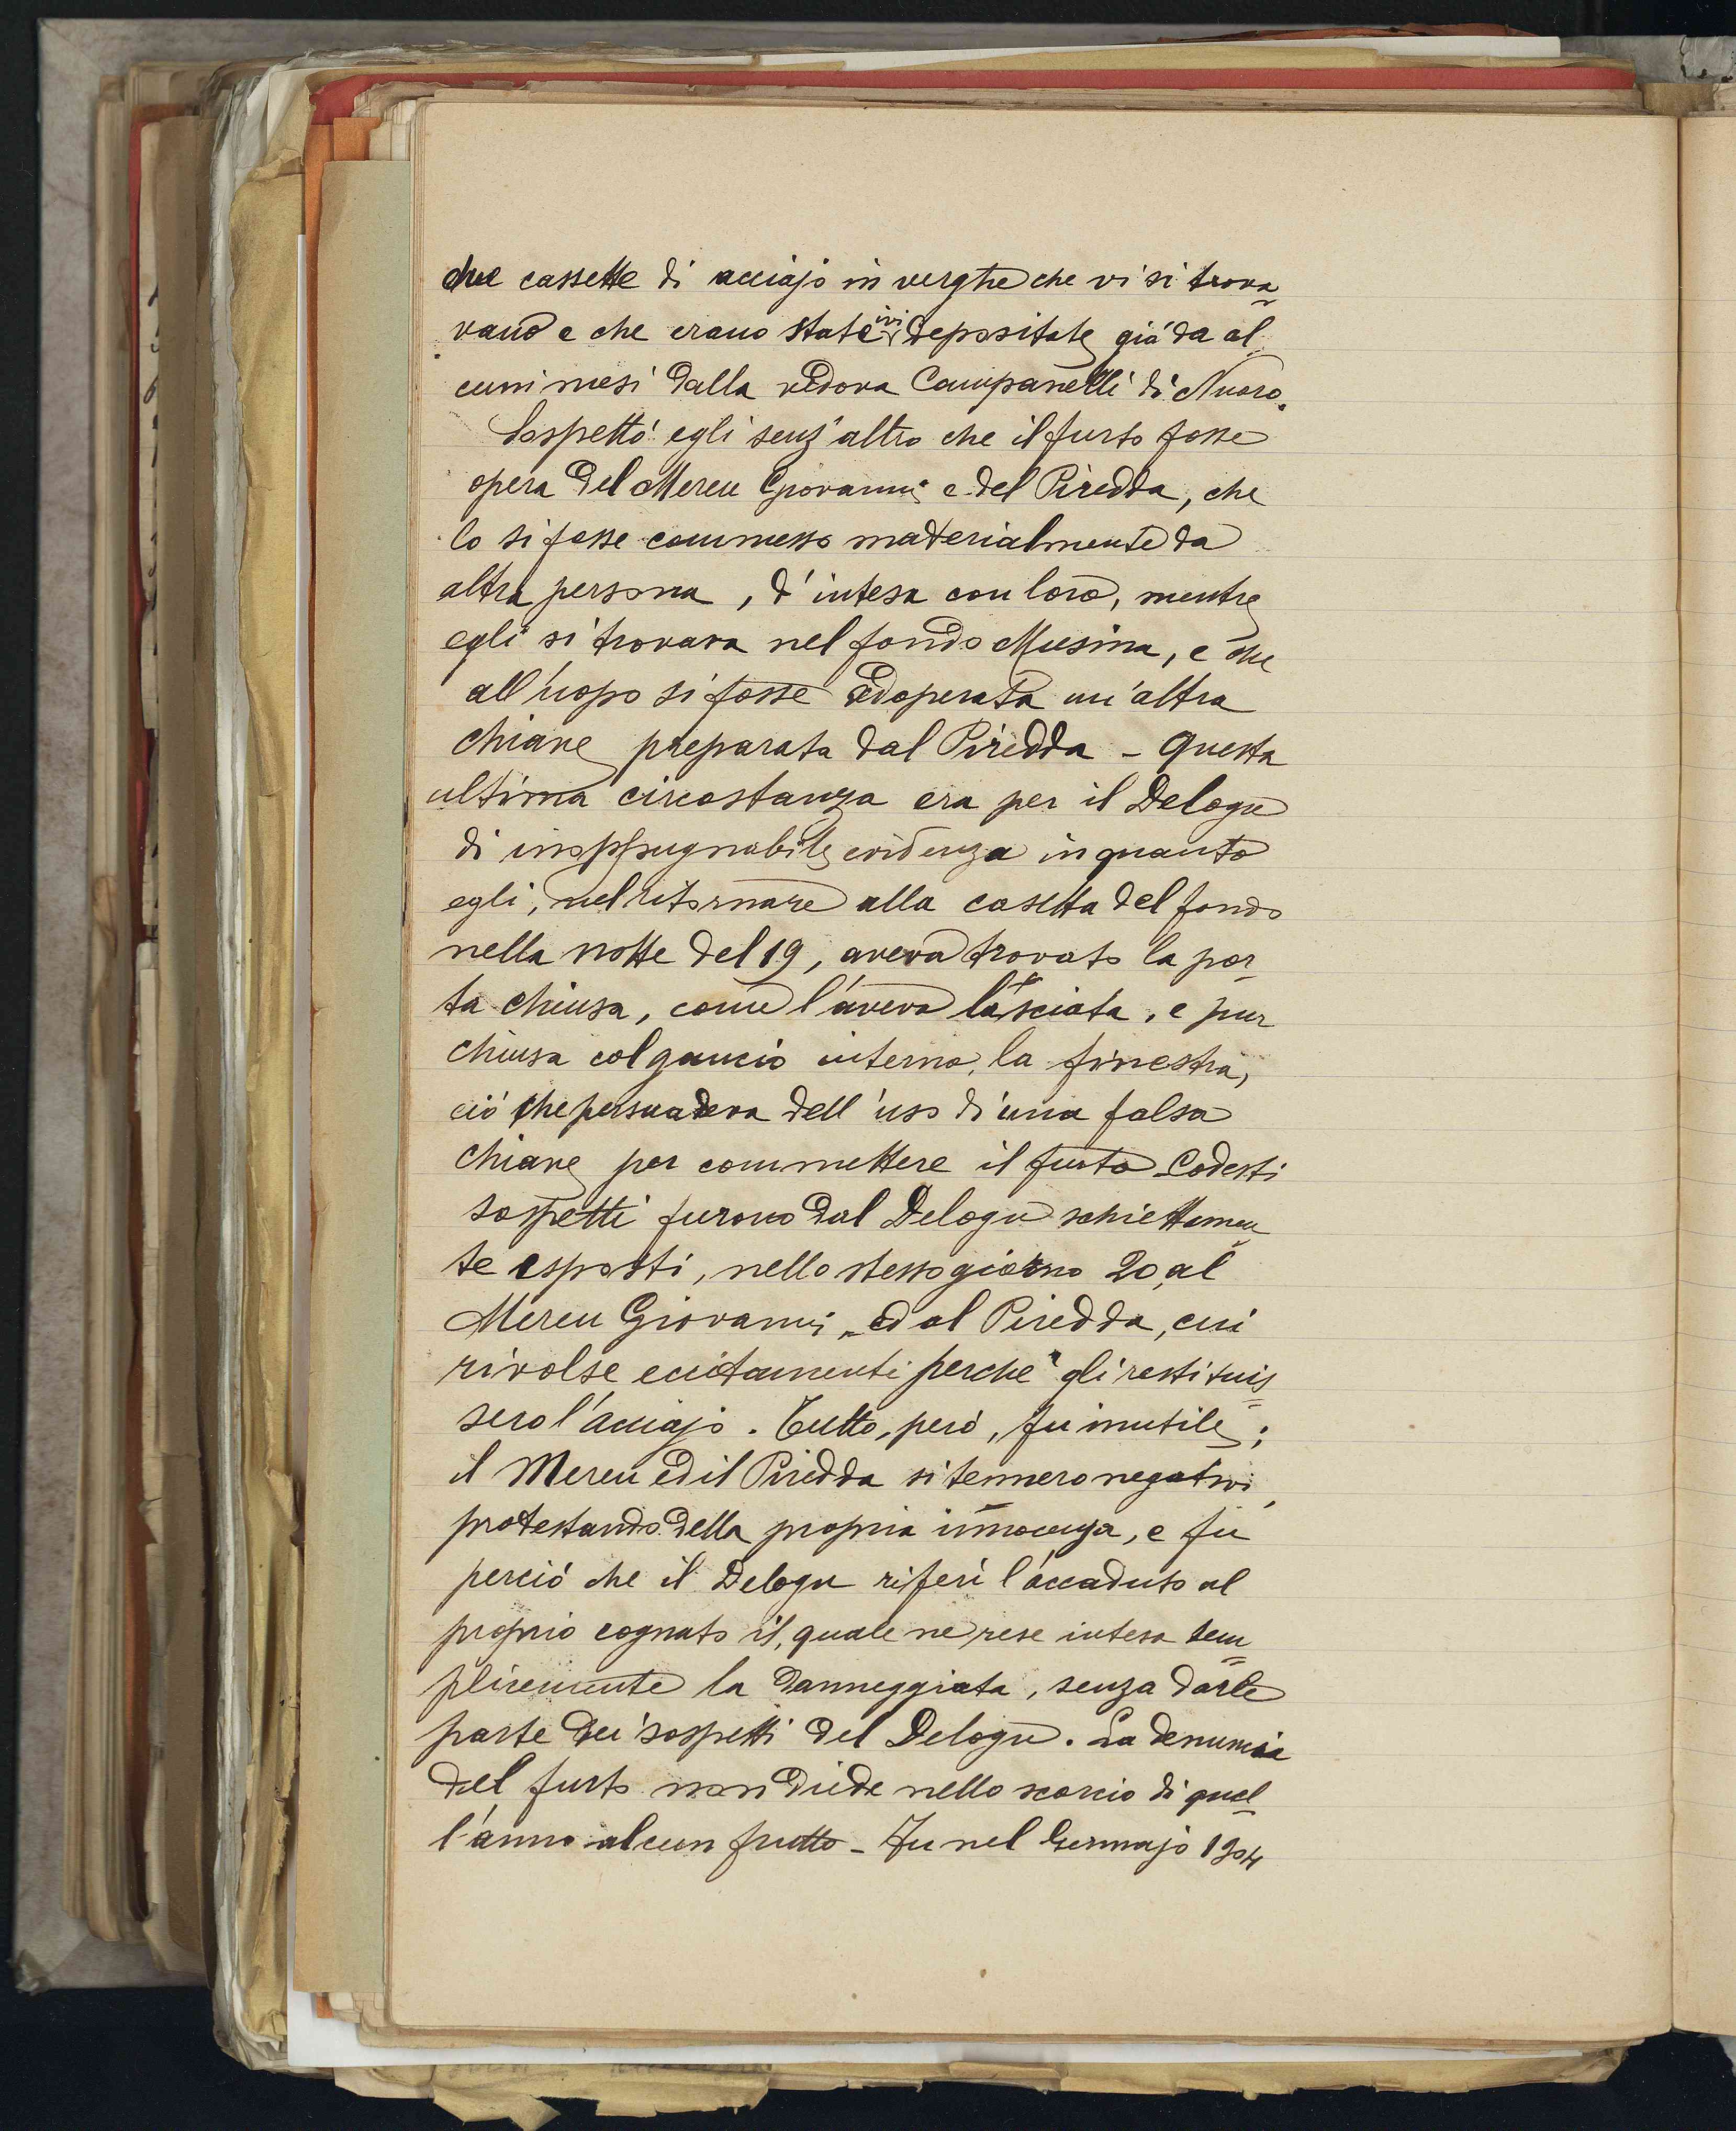 due cassette di acciajo in verghe che vi si trova=
vano e che erano state ivi depositate già da al=
cuni mesi dalla vedova Campanelli di Nuoro.
Sospettò egli senz'altro che il furto fosse
opera del Mereu Giovanni e del Piredda, che
lo si fosse commesso materialmente da
altra persona, d'intesa con loro, mentre
egli si trovava nel fondo Musina, e che
all'uopo si fosse adoperata un'altra
chiave preparata dal Piredda - Questa
ultima circostanza era per il Delogu
di inoppugnabile evidenza in quanto
egli, nel ritornare alla casetta del fondo
nella notte del 19, aveva trovato la por=
ta chiusa, come l'aveva lasciata, e pur
chiusa col gancio interno, la finestra,
ciò che persuadeva dell'uso d'una falsa
chiave per commettere il furto - Codesti
sospetti furono dal Delogu schiettamen=
te esposti, nello stesso giorno 20, al
Mereu Giovanni, ed al Piredda, cui
rivolse eccitamenti perchè gli restituis=
sero l'acciajo. Tutto, però, fu inutile;
il Mereu ed il Piredda si tennero negativi,
protestando della propria innocenza, e fu
perciò che il Delogu riferì l'accaduto al
proprio cognato il, quale ne rese intesa sem=
plicemente la danneggiata, senza darle
parte dei sospetti del Delogu. La denuncia
del furto non diede nello scorcio di quel=
l'anno alcun frutto - Fu nel Gennajo 1904